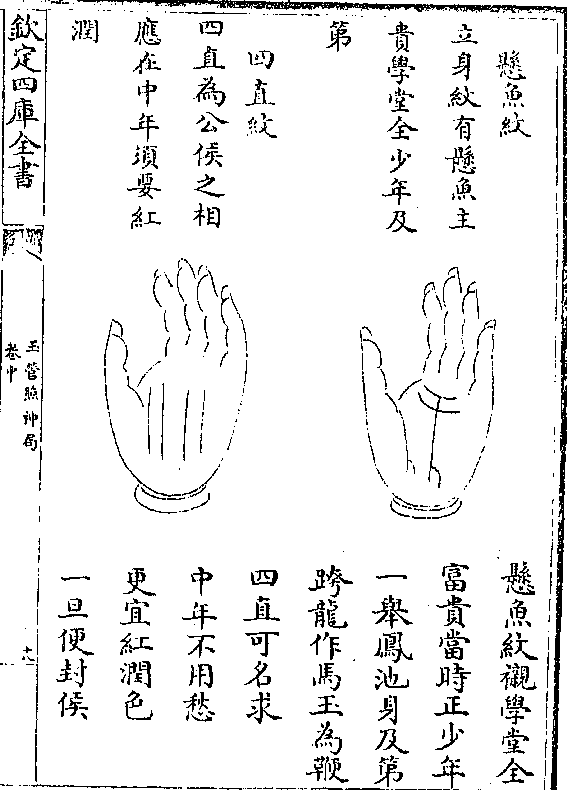 懸魚紋
立身紋有懸魚主
貴學堂全少年及
第
四直紋
四直為公侯之相
應在中年須要紅
潤
懸魚紋襯學堂全
富貴當時正少年
一舉鳳池身及第
跨龍作馬玉為鞭
四直可名求
中年不用愁
更宜紅潤色
一旦便封侯
欽定四庫全書
玉管照神局
卷中
十八